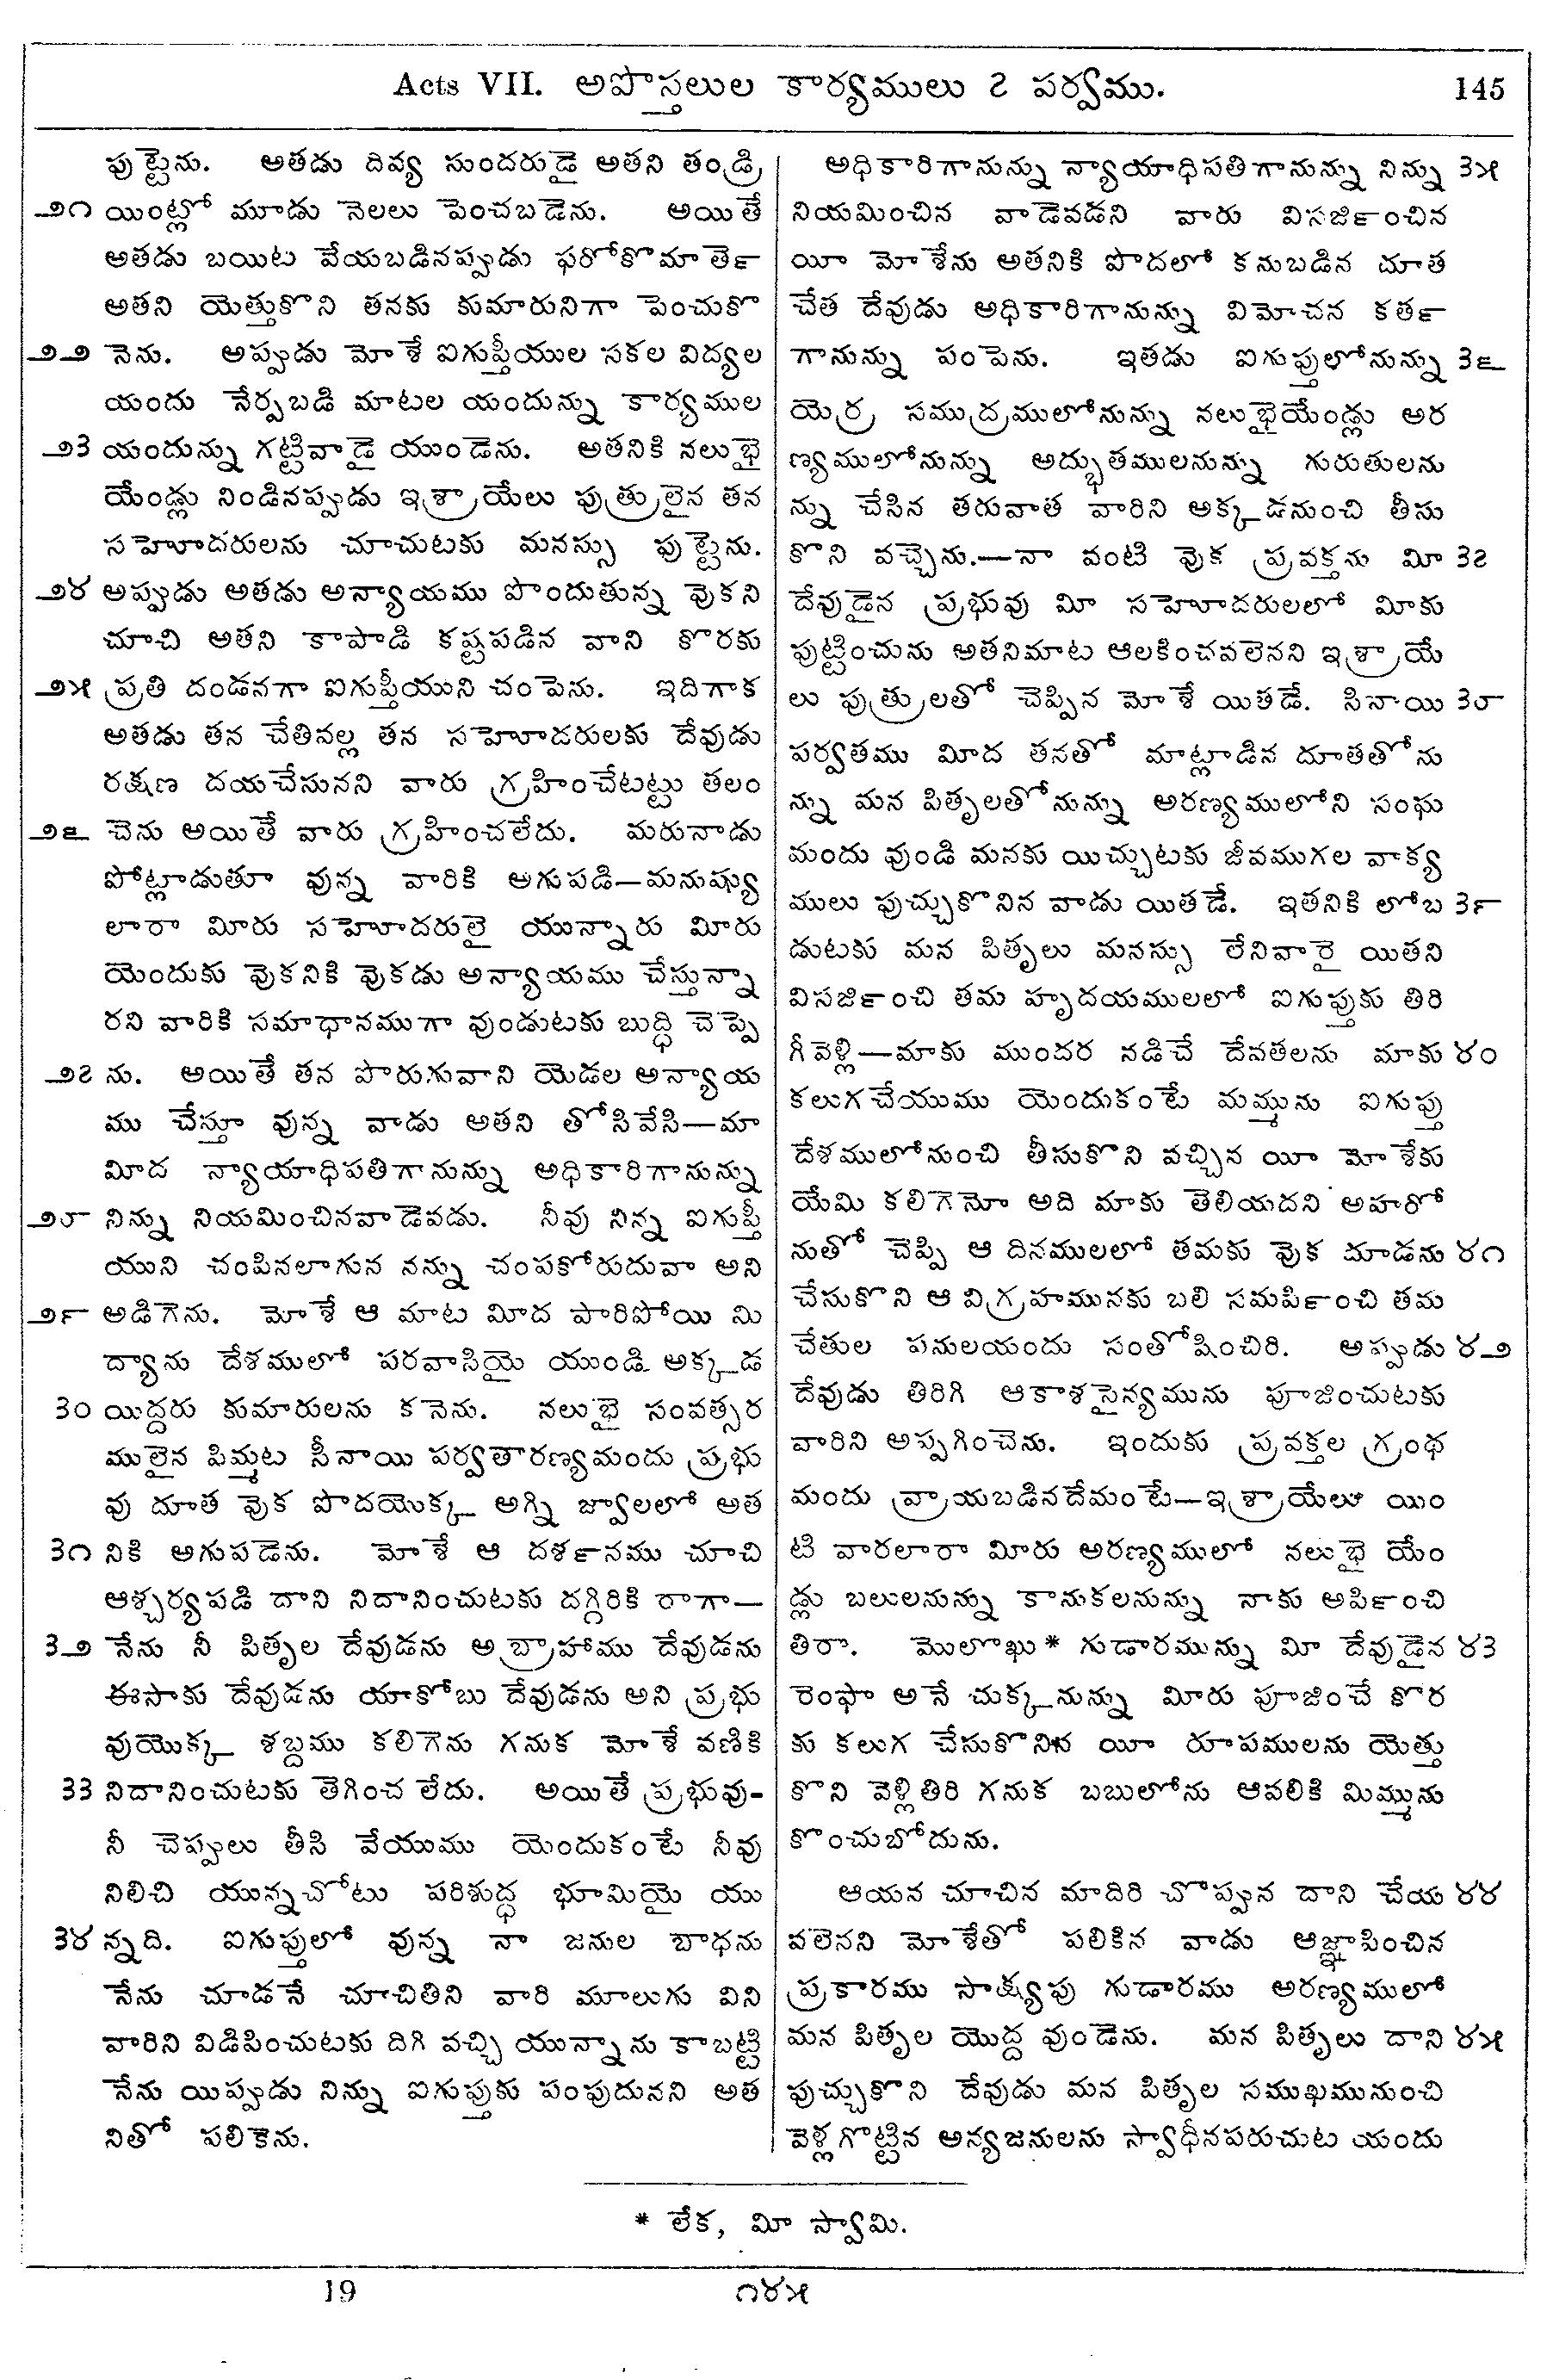 Acts VII. అపొస్తలుల కార్యములు ౭ పర్వము. 145
పుట్టెను. అతడు దివ్య సుందరుడై అతని తండ్రి
౨౧ యింట్లో మూడు నెలలు పెంచబడెను. అయితే
అతడు బయిట వేయబడినప్పుడు ఫరోకొమార్తె
అతని యెత్తుకొని తనకు కుమారునిగా పెంచుకొ
౨౨ నెను. అప్పుడు మోశే ఐగుప్తీయుల సకల విద్యల
యందు నేర్పబడి మాటల యందున్ను కార్యముల
౨౩ యందున్ను గట్టివాడై యుండెను. అతనికి నలుభై
యేండ్లు నిండినప్పుడు ఇశ్రాయేలు పుత్రులైన తన
సహోదరులను చూచుటకు మనస్సు పుట్టెను.
౨౪ అప్పుడు అతడు అన్యాయము పొందుతున్న వొకని
చూచి అతని కాపాడి కష్టపడిన వాని కొరకు
౨౫ ప్రతి దండనగా ఐగుప్తీయుని చంపెను. ఇదిగాక
అతడు తన చేతివల్ల తన సహోదరులకు దేవుడు
రక్షణ దయచేసునని వారు గ్రహించేటట్టు తలం
౨౬ చెను అయితే వారు గ్రహించలేదు. మరునాడు
పోట్లాడుతూ వున్న వారికి అగుపడి—మనుష్యు
లారా మీరు సహోదరులై యున్నారు మీరు
యెందుకు వొకనికి వొకడు అన్యాయము చేస్తున్నా
రని వారికి సమాధానముగా వుండుటకు బుద్ధి చెప్పె
౨౭ ను. అయితే తన పొరుగువాని యెడల అన్యాయ
ము చేస్తూ వున్న వాడు అతని తోసివేసి—మా
మీద న్యాయాధిపతిగానున్ను అధికారిగానున్ను
౨౮ నిన్ను నియమించినవాడెవడు. నీవు నిన్న ఐగుప్తీ
యుని చంపినలాగున నన్ను చంపకోరుదువా అని
౨౯ అడిగెను. మోశే ఆ మాట మీద పారిపోయి మి
ద్యాను దేశములో పరవాసియై యుండి అక్కడ
౩౦ యిద్దరు కుమారులను కనెను. నలుభై సంవత్సర
ములైన పిమ్మట సీనాయి పర్వతారణ్యమందు ప్రభు
వు దూత వొక పొదయొక్క అగ్ని జ్వాలలో అత
౩౧ నికి అగుపడెను. మోశే ఆ దర్శనము చూచి
ఆశ్చర్యపడి దాని నిదానించుటకు దగ్గిరికి రాగా—
౩౨ నేను నీ పితృల దేవుడను అబ్రాహాము దేవుడను
ఈసాకు దేవుడను యాకోబు దేవుడను అని ప్రభు
వుయొక్క శబ్దము కలిగెను గనుక మోశే వణికి
౩౩ నిదానించుటకు తెగించ లేదు. అయితే ప్రభువు-
నీ చెప్పులు తీసి వేయుము యెందుకంటే నీవు
నిలిచి యున్నచోటు పరిశుద్ధ భూమియై యు
౩౪ న్నది. ఐగుప్తులో వున్న నా జనుల బాధను
నేను చూడనే చూచితిని వారి మూలుగు విని
వారిని విడిపించుటకు దిగి వచ్చి యున్నాను కాబట్టి
నేను యిప్పుడు నిన్ను ఐగుప్తుకు పంపుదునని అత
నితో పలికెను.
అధికారిగానున్ను న్యాయాధిపతిగానున్ను నిన్ను ౩౫
నియమించిన వాడెవడని వారు విసర్జించిన
యీ మోశేను అతనికి పొదలో కనుబడిన దూత
చేత దేవుడు అధికారిగానున్ను విమోచన కర్త
గానున్ను పంపెను. ఇతడు ఐగుప్తులోనున్ను ౩౬
యెర్ర సముద్రములోనున్ను నలుభైయేండ్లు అర
ణ్యములోనున్ను అద్భుతములనున్ను గురుతులను
న్ను చేసిన తరువాత వారిని అక్కడనుంచి తీసు
కొని వచ్చెను.—నా వంటి వొక ప్రవక్తను మీ ౩౭
దేవుడైన ప్రభువు మీ సహోదరులలో మీకు
పుట్టించును అతనిమాట ఆలకించవలెనని ఇశ్రాయే
లు పుత్రులతో చెప్పిన మోశే యితడే. సినాయి ౩౮
పర్వతము మీద తనతో మాట్లాడిన దూతతోను
న్ను మన పితృలతోనున్ను అరణ్యములోని సంఘ
మందు వుండి మనకు యిచ్చుటకు జీవముగల వాక్య
ములు పుచ్చుకొనిన వాడు యితడే. ఇతనికి లోబ ౩౯
డుటకు మన పితృలు మనస్సు లేనివారై యితని
విసర్జించి తమ హృదయములలో ఐగుప్తుకు తిరి
గీవెళ్లి—మాకు ముందర నడిచే దేవతలను మాకు ౪౦
కలుగచేయుము యెందుకంటే మమ్మును ఐగుప్తు
దేశములోనుంచి తీసుకొని వచ్చిన యీ మోశేకు
యేమి కలిగెనో అది మాకు తెలియదని అహరో
నుతో చెప్పి ఆ దినములలో తమకు వొక దూడను ౪౧
చేసుకొని ఆ విగ్రహమునకు బలి సమర్పించి తమ
చేతుల పనులయందు సంతోషించిరి. అప్పుడు ౪౨
దేవుడు తిరిగి ఆకాశసైన్యమును పూజించుటకు
వారిని అప్పగించెను. ఇందుకు ప్రవక్తల గ్రంథ
మందు వ్రాయబడినదేమంటే—ఇశ్రాయేలు యిం
టి వారలారా మీరు అరణ్యములో నలుభై యేం
డ్లు బలులనున్ను కానుకలనున్ను నాకు అర్పించి
తిరా. మొలొఖు* గుడారమున్ను మీ దేవుడైన ౪౩
రెంఫా అనే చుక్కనున్ను మీరు పూజించే కొర
కు కలుగ చేసుకొనిన యీ రూపములను యెత్తు
కొని వెళ్లితిరి గనుక బబులోను ఆవలికి మిమ్మును
కొంచుబోదును.
ఆయన చూచిన మాదిరి చొప్పున దాని చేయ ౪౪
వలెనని మోశేతో పలికిన వాడు ఆజ్ఞాపించిన
ప్రకారము సాక్ష్యపు గుడారము అరణ్యములో
మన పితృల యొద్ద వుండెను. మన పితృలు దాని ౪౫
పుచ్చుకొని దేవుడు మన పితృల సముఖమునుంచి
వెళ్లగొట్టిన అన్యజనులను స్వాధీనపరుచుట యందు
* లేక, మీ స్వామి.
19 ౧౪౫